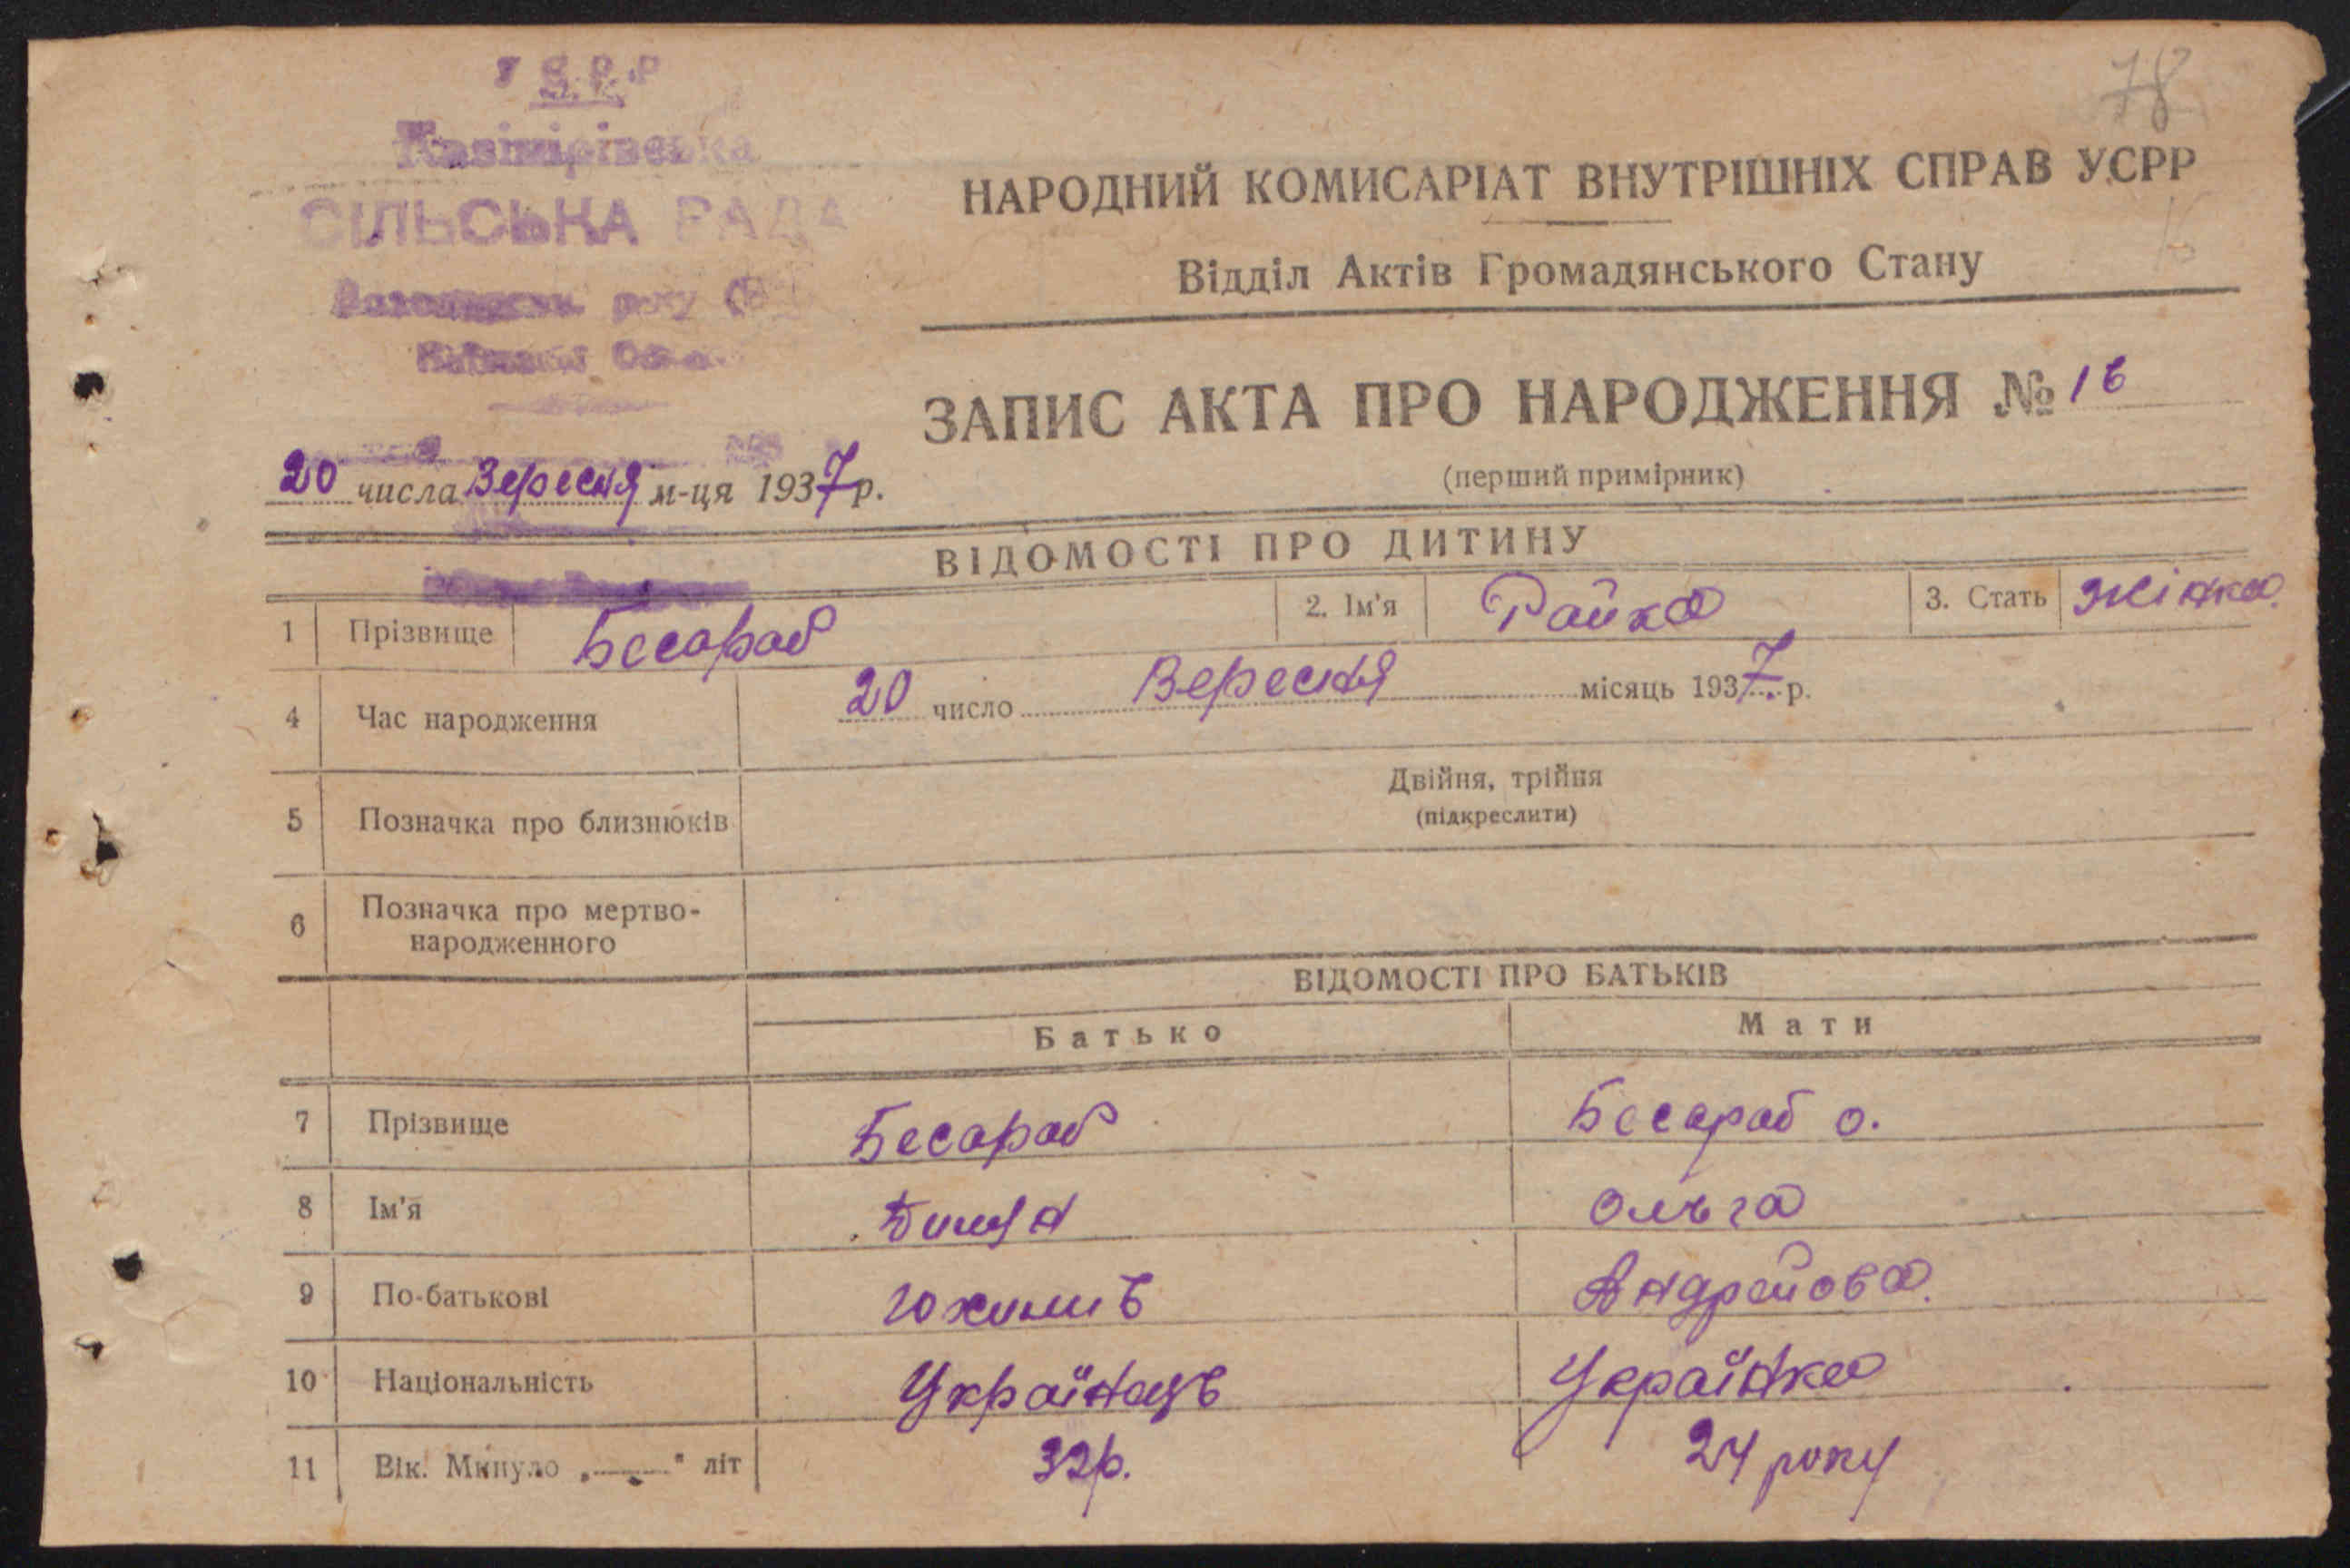 УСРР
Казімірівська
СІЛЬСЬКА РАДА
району
78
НАРОДНИЙ КОМИСАРІАТ ВНУТРІШНІХ СПРАВ УСРР
Відділ Актів Громадянського Стану
ЗАПИС АКТА ПРО НАРОДЖЕННЯ № 16
(перший примірник)
20 числа Вересня м-ця 1937 р.
ВІДОМОСТІ ПРО ДИТИНУ
1 Прізвище Бесараб 2. Ім'я Райка 3. Стать жінка.
4 Час народження 20 число Вересня місяць 1937. р.
5 Позначка про близнюків Двійня, трійня
(підкреслити)
6 Позначка про мертво-
народженного
ВІДОМОСТІ ПРО БАТЬКІВ
Батько Мати
7 Прізвище Бесараб Бесараб О.
8 Ім'я Ольга
9 По-батькові Юхимів Андрейова.
10 Національність Українець Українка
11 Вік. Минуло „ " літ 32р. 24 року